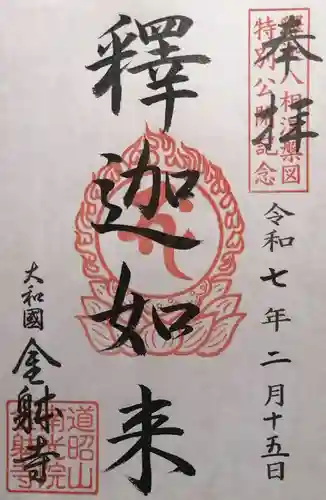 奉拝
釋迦八相涅槃図
特別公開記念
令和七年二月十五日
釋迦如来
大和國
金躰寺
道昭山